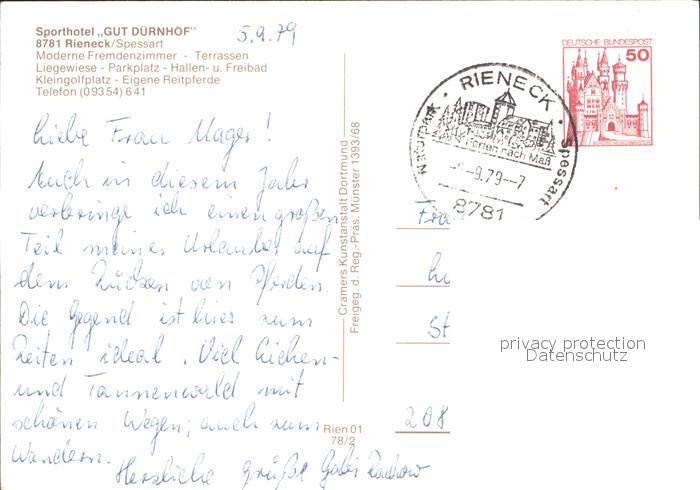 Sporthotel „GUT DÜRNHOF"
8781 Rieneck/Spessart
Moderne Fremdenzimmer - Terrassen
Liegewiese - Parkplatz - Hallen- u. Freibad
Kleingolfplatz - Eigene Reitpferde
Telefon (09354) 641
5.9.79
Liebe Frau Mager!
Auch in diesem Jahr
verbringe ich einen großen
Teil meines Urlaubes auf
dem Rücken von Pferden.
Die Gegend ist hier zum
Reiten ideal. Viel Eichen-
und Tannenwald mit
schönen Wegen; auch zum
Wandern.
Herzliche Grüße Gabi
Cramers Kunstanstalt Dortmund
Freigeg. d. Reg.-Präs. Münster 1393/68
Rien 01
78/2
DEUTSCHE BUNDESPOST
50
RIENECK
Naturpark Spessart
Ferien nach Maß
-9.79--7
8781
Frau
St
208
privacy protection
Datenschutz